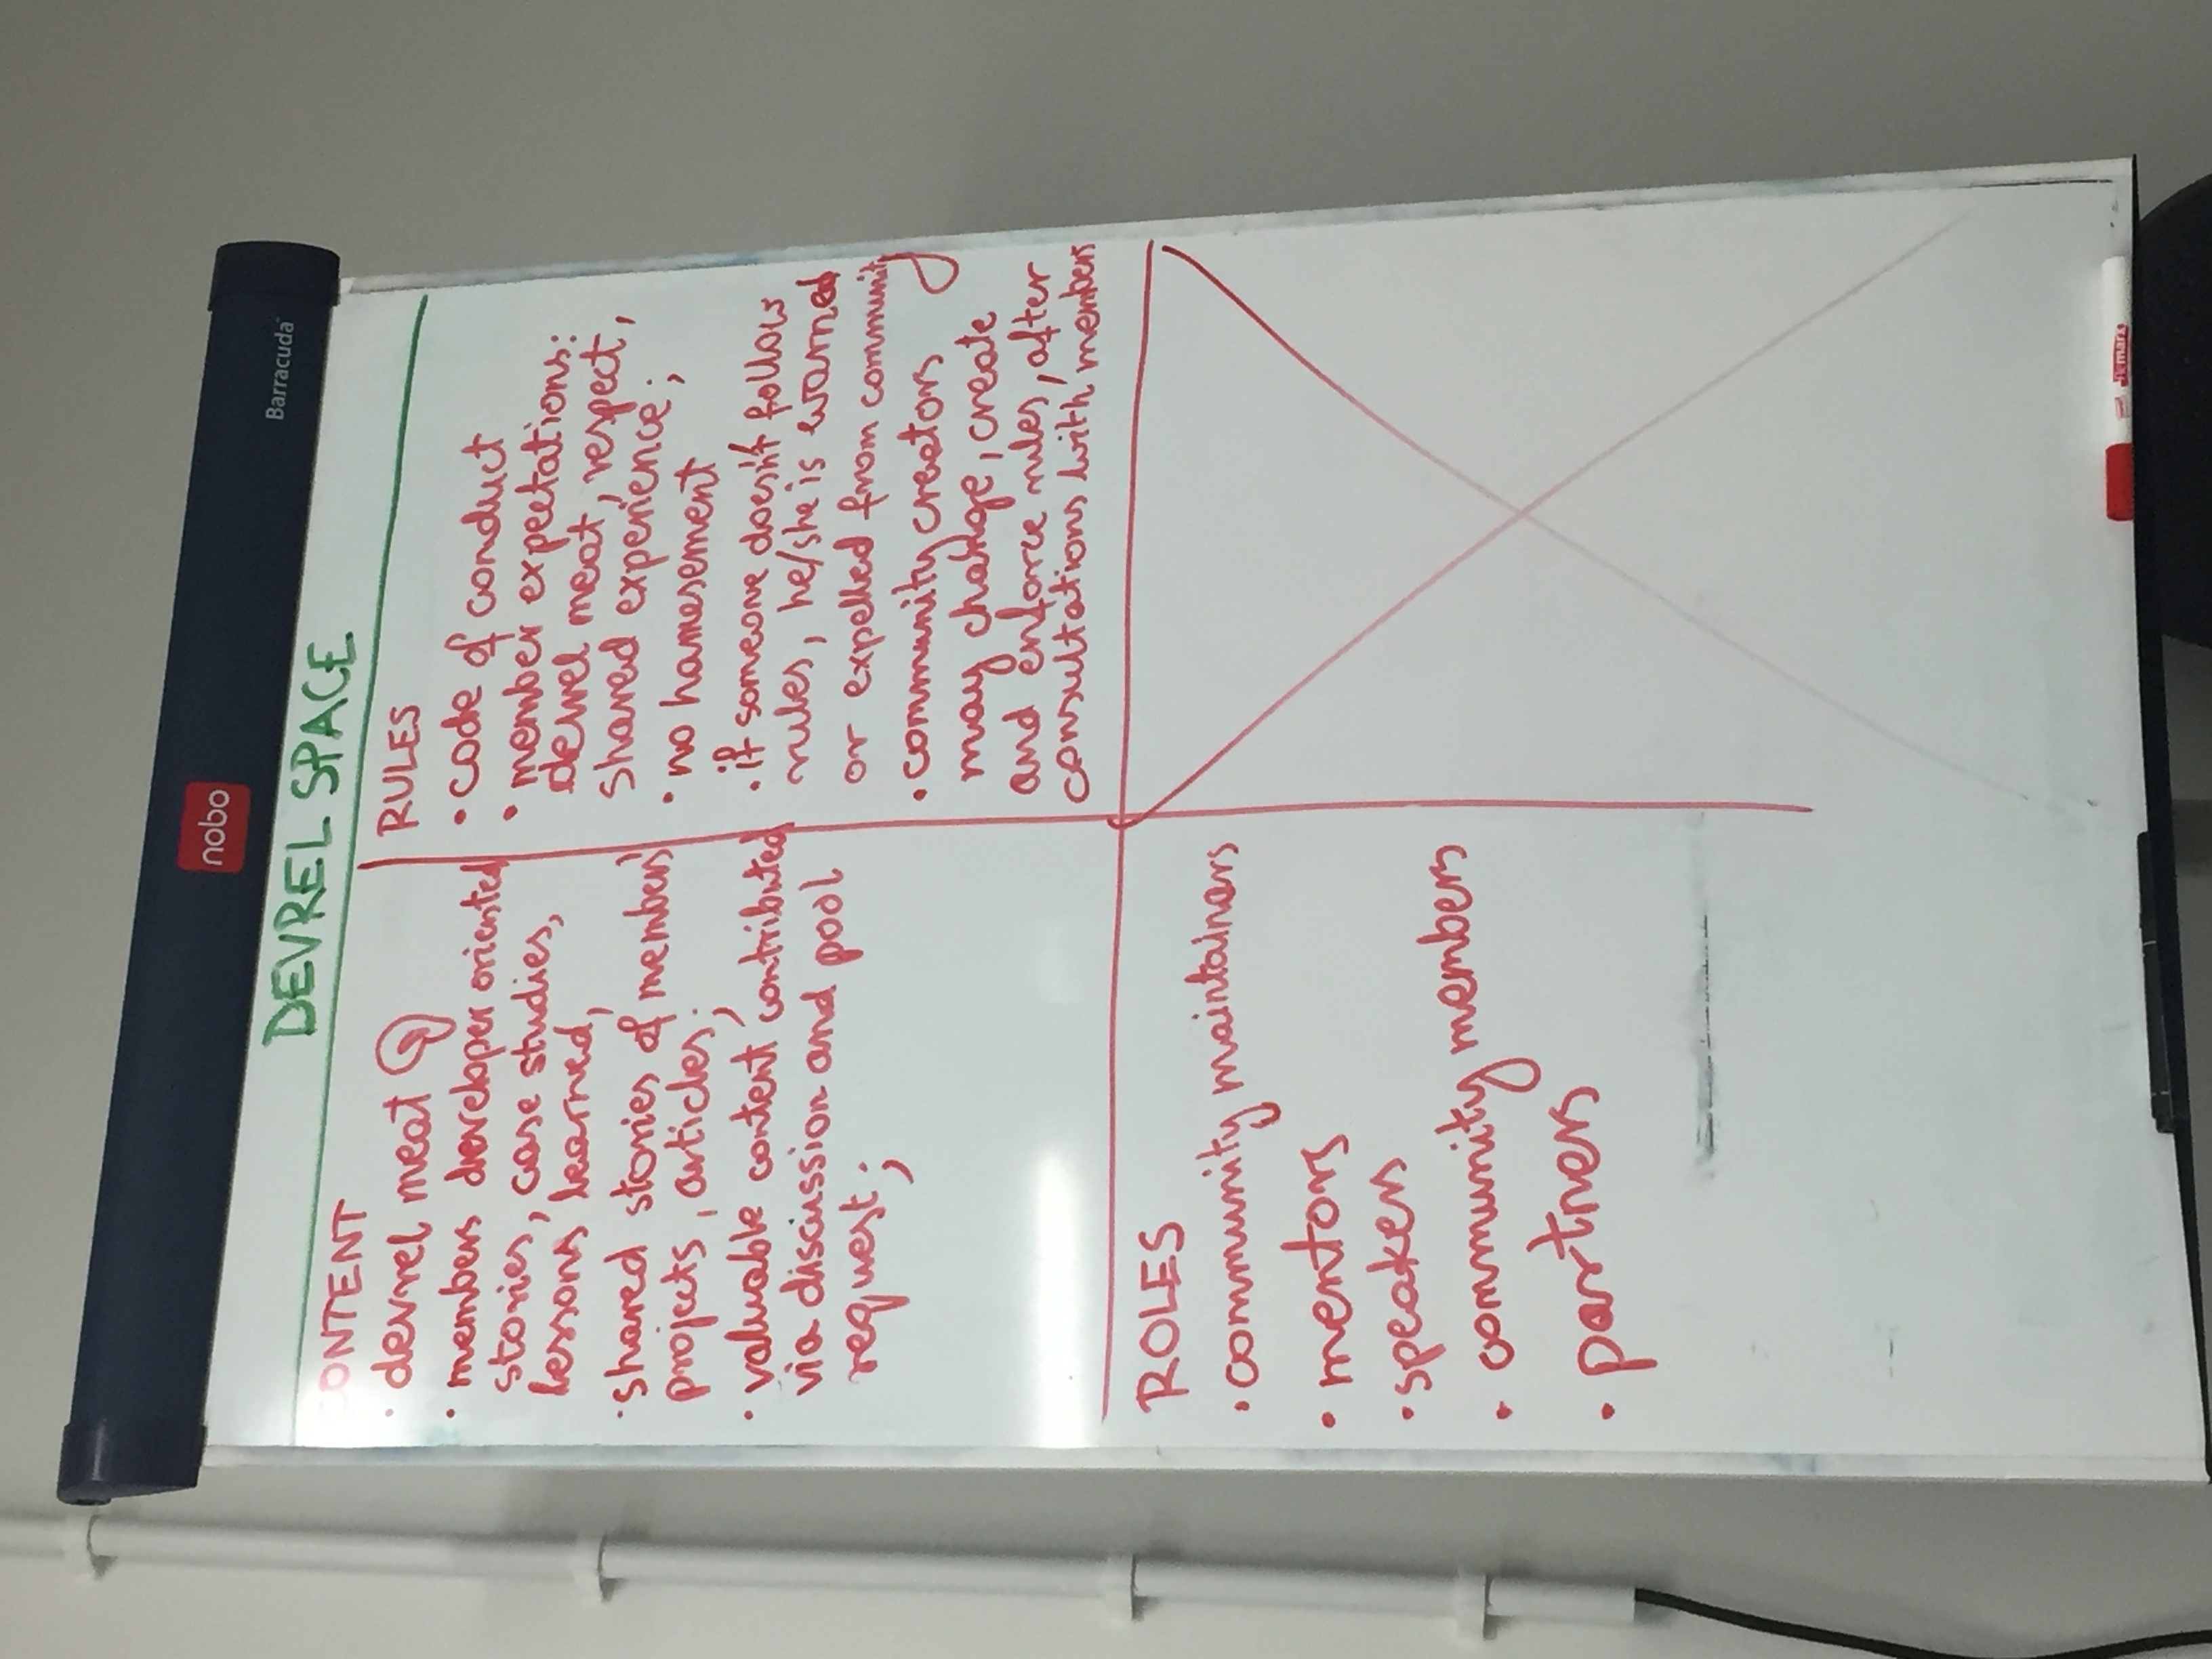 nobo
Barracuda
DEVREL SPACE
CONTENT
• devrel meat
• members developer oriented
stories, case studies,
lessons learned,
• shared stories of members'
projects, articles;
• valuable content contributed
via discussion and pool
request;
RULES
• code of conduct
• member expectations:
devrel meat, respect,
shared experience;
• no harresement
• if someone doesn't follow
rules, he/she is warned
or expelled from community
• community creators
may change, create
and enforce rules, after
consultations with members
ROLES
• community maintainers
• mentors
• speakers
• community members
• partners